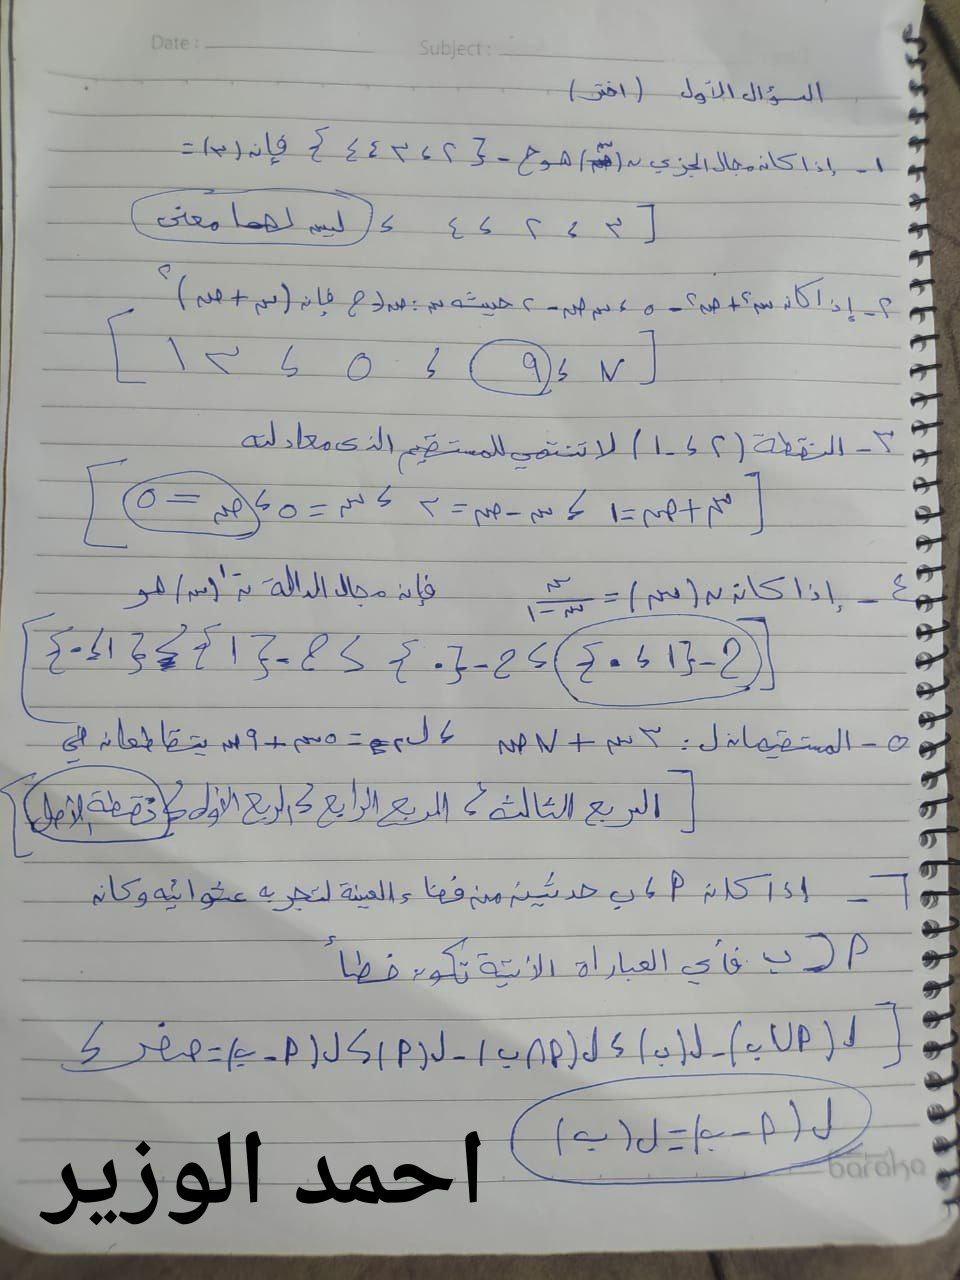 Date : Subject :
السؤال الأول (اختر)
١- إذا كانه مجال الجزري ن (س) هو ح - {٢، ٣، ٤} فإنه (٣) =
[٣ ، ٢ ، ٤ ، ليس لهما معنى
٢- إذا كانه س٢ + ص٢ = ٥ ، س ص = ٢ حيث س، ص ∈ ح فإنه (س + ص)٢
[٧ ، ٩ ، ٥ ، ١٣]
٣- النقطة (٢، -١) لا تنتمي للمستقيم الذى معادلته
[س + ص = ١ ، س - ص = ٣ ، س = ٥ ، ص = ٥]
٤- إذا كانه ن (س) = س / س - ١ فإنه مجال الدالة ن-١ (س) هو
[ح - {١، ٠} ، ح - {٠} ، ح - {١} ، {١، ٠}]
٥- المستقيمانه ل: ٣س + ٧ص ، ل٢ = ٥س + ٩ص يتقاطعانه في
[الربع الثالث ، الربع الرابع ، الربع الأول ، نقطة الأصل]
٦- إذا كانه P ، ب حدثين منه فضاء العينة لتجربه عشوائيه وكانه
P ⊂ ب فأي العباراة الآتية تكونه خطأ
[ل (P ∪ ب) = ل (ب) ، ل (P ∩ ب) = ل (P) ، ل (P - ب) = صفر ،
ل (P - ب) = ل (ب)
baraka
احمد الوزير